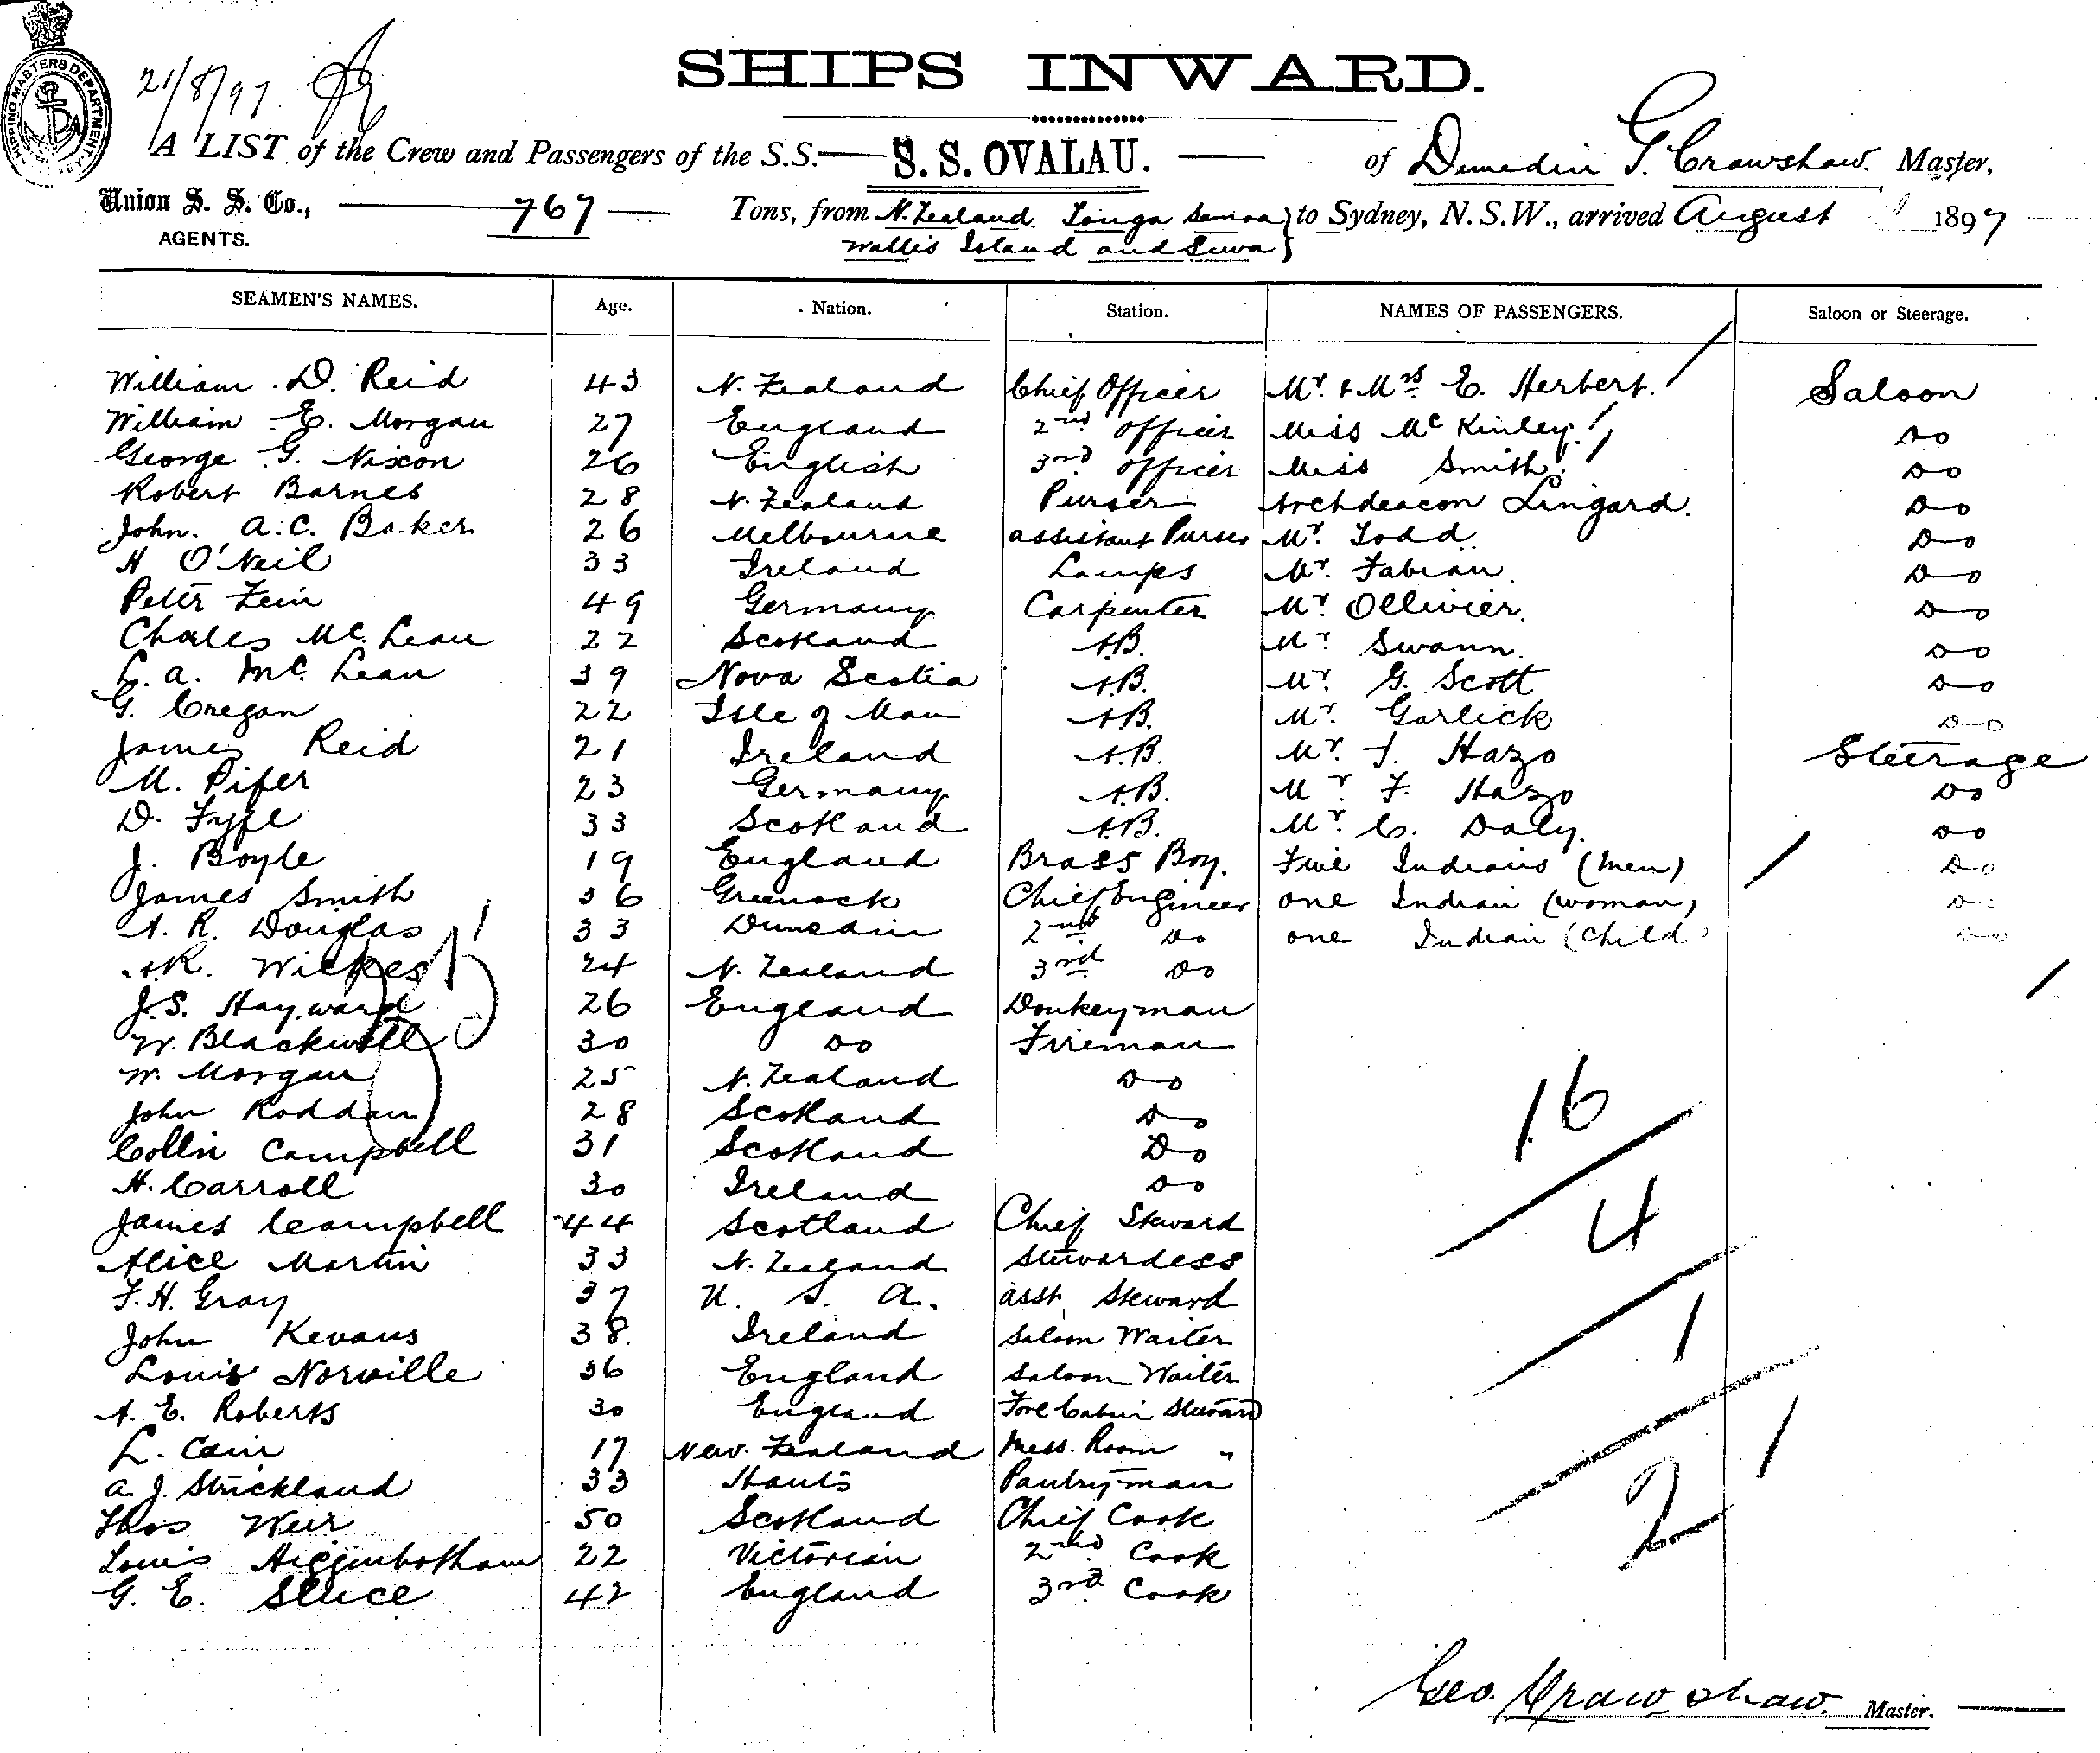 SHIPPING MASTERS DEPARTMENT
21/8/97
SHIPS INWARD.
A LIST of the Crew and Passengers of the S.S. S.S. OVALAU. of Dunedin G. Crawshaw. Master,
Union S. S. Co., 767 Tons, from N. Zealand. Tonga Samoa } to Sydney, N.S.W., arrived August 1897
AGENTS. Wallis Island and Suva }
SEAMEN'S NAMES. Age. Nation. Station. NAMES OF PASSENGERS. Saloon or Steerage.
William D. Reid 43 N. Zealand Chief Officer Mr. & Mrs E. Herbert. Saloon
William E. Morgan 27 England 2nd officer Miss McKinley. Do
George G. Nixon 26 English 3rd officer Miss Smith. Do
Robert Barnes 28 N. Zealand Purser Archdeacon Lingard. Do
John. A.C. Baker 26 Melbourne assistant Purser Mr. Todd. Do
H O'Neil 33 Ireland Lamps Mr. Fabian. Do
Peter Fein 49 Germany Carpenter Mr Ollivier. Do
Charles Mc. Lean 22 Scotland A.B. Mr Swann. Do
L. a. Mc. Lean 39 Nova Scotia A.B. Mr. G. Scott Do
G. Cregan 22 Isle of Man A.B. Mr. Garlick Do
James Reid 21 Ireland A.B. Mr. J. Hazo Steerage
M. Pifer 23 Germany A.B. Mr F. Hazo Do
D. Fyfe 33 Scotland A.B. Mr. C. Daly. Do
J. Boyle 19 England Brass Boy. Five Indians (men) Do
James Smith 36 Greenock Chief Engineer one Indian (woman) Do
A. R. Douglas 33 Dunedin 2nd Do one Indian (child) Do
A.R. Wilkes 24 N. Zealand 3rd Do
J.S. Hayward 26 England Donkeyman
W. Blackwell 30 Do Fireman
W. Morgan 25 N. Zealand Do
John Roddan 28 Scotland Do
Collin Campbell 31 Scotland Do
H. Carroll 30 Ireland Do
James Campbell 44 Scotland Chief Steward
Alice Martin 33 N. Zealand Stewardess
F. H. Gray 37 U. S. A. asst Steward
John Kevans 38. Ireland Saloon Waiter
Louis Norville 36 England Saloon Waiter
A. E. Roberts 30 England Fore Cabin Steward
L. Cain 17 New. Zealand Mess. Room "
a. J. Strickland 33 Hants Pantryman
Thos Weir 50 Scotland Chief Cook
Louis Higginbotham 22 Victorian 2nd Cook
G. E. Sluce 42 England 3rd Cook
16
4
1
1
2
Geo. Crawshaw. Master.